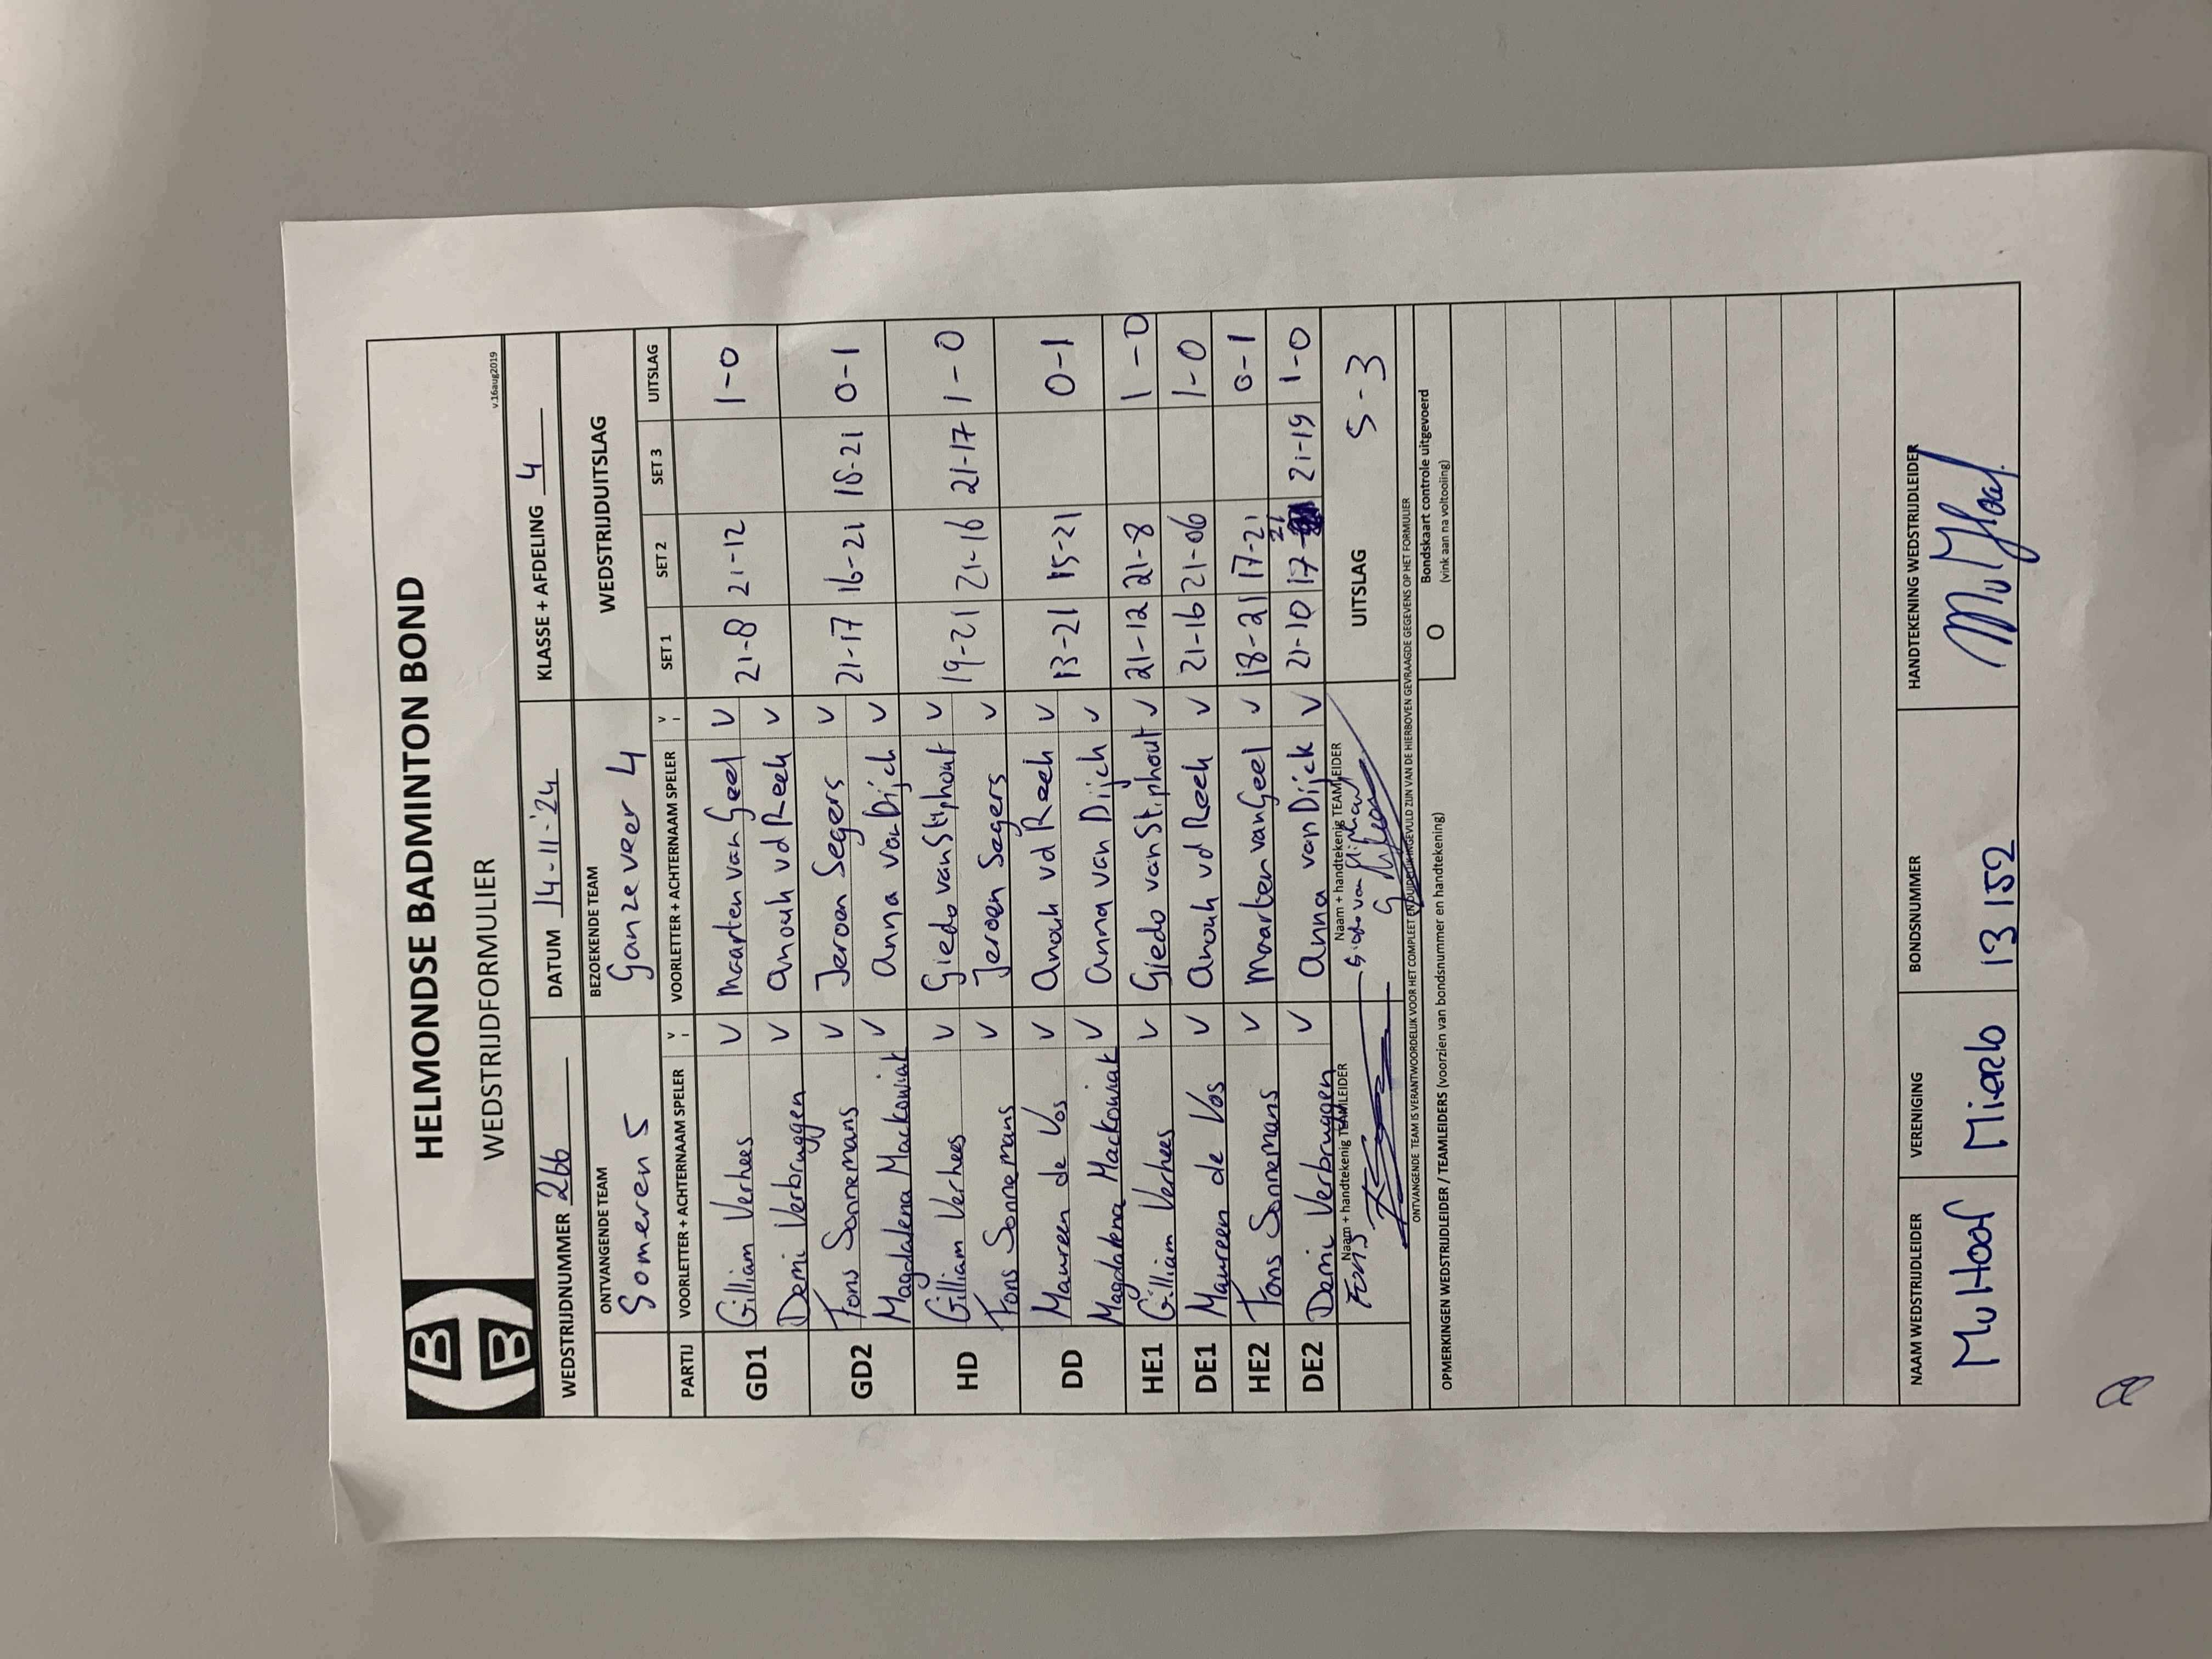 HELMONDSE BADMINTON BOND
WEDSTRIJDFORMULIER
v.16aug2019
WEDSTRIJDNUMMER 266 DATUM 14-11-'24 KLASSE + AFDELING 4
ONTVANGENDE TEAM BEZOEKENDE TEAM WEDSTRIJDUITSLAG
Someren 5 Ganzeveer 4
PARTIJ VOORLETTER + ACHTERNAAM SPELER V VOORLETTER + ACHTERNAAM SPELER V SET 1 SET 2 SET 3 UITSLAG
GD1 Gilliam Verhees V Maarten van Geel V 21-8 21-12 1-0
Demi Verbruggen V Anouk vd Reek V
GD2 Fons Sonnemans V Jeroen Segers V 21-17 16-21 18-21 0-1
Magdalena Mackowiak V Anna van Dijck V
HD Gilliam Verhees V Giedo van Stiphout V 19-21 21-16 21-17 1-0
Fons Sonnemans V Jeroen Segers V
DD Maureen de Vos V Anouk vd Reek V 13-21 15-21 0-1
Magdalena Mackowiak V Anna van Dijck V
HE1 Gilliam Verhees V Giedo van Stiphout V 21-12 21-8 1-0
DE1 Maureen de Vos V Anouk vd Reek V 21-16 21-06 1-0
HE2 Fons Sonnemans V Maarten van Geel V 18-21 17-21 0-1
DE2 Demi Verbruggen V Anna van Dijck V 21-10 17-21 21-19 1-0
Naam + handtekenig TEAMLEIDER Naam + handtekenig TEAMLEIDER UITSLAG 5-3
Fons Giedo van Stiphout
ONTVANGENDE TEAM IS VERANTWOORDELIJK VOOR HET COMPLEET EN DUIDELIJK INGEVULD ZIJN VAN DE HIERBOVEN GEVRAAGDE GEGEVENS OP HET FORMULIER
OPMERKINGEN WEDSTRIJDLEIDER / TEAMLEIDERS (voorzien van bondsnummer en handtekening)
O Bondskaart controle uitgevoerd
(vink aan na voltooiing)
NAAM WEDSTRIJDLEIDER VERENIGING BONDSNUMMER HANDTEKENING WEDSTRIJDLEIDER
MvHoof Mierlo 13152